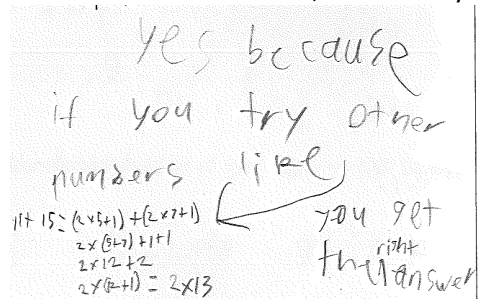 yes because
if you try other
numbers like
11+15=(2x5+1)+(2x7+1)
2x(5+7)+1+1
2x12+2
2x(12+1) = 2x13
you get
the right answer